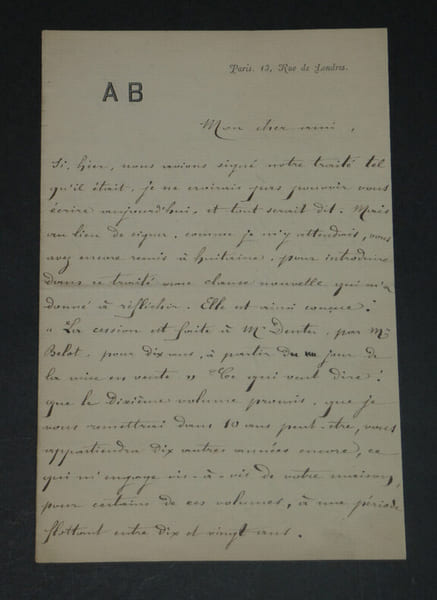 Paris. 13, Rue de Londres.
AB
Mon cher ami,
Si, hier, nous avions signé notre traité tel
qu'il était, je ne croirais pas pouvoir vous
écrire aujourd'hui, et tout serait dit. Mais
au lieu de signer, comme je m'y attendais, vous
avez encore remis à huitaine, pour introduire
dans ce traité une clause nouvelle qui m'a
donné à réfléchir. Elle est ainsi conçue :
" La cession est faite à Mr Dentu, par Mr
Belot, pour dix ans, à partir du jour de
la mise en vente " Ce qui veut dire :
que le Dixième volume promis, que je
vous remettrai dans 10 ans peut-être, vous
appartiendra dix autres années encore, ce
qui m'engage vis-à-vis de votre maison,
pour certains de ces volumes, à une période
flottant entre dix et vingt ans.